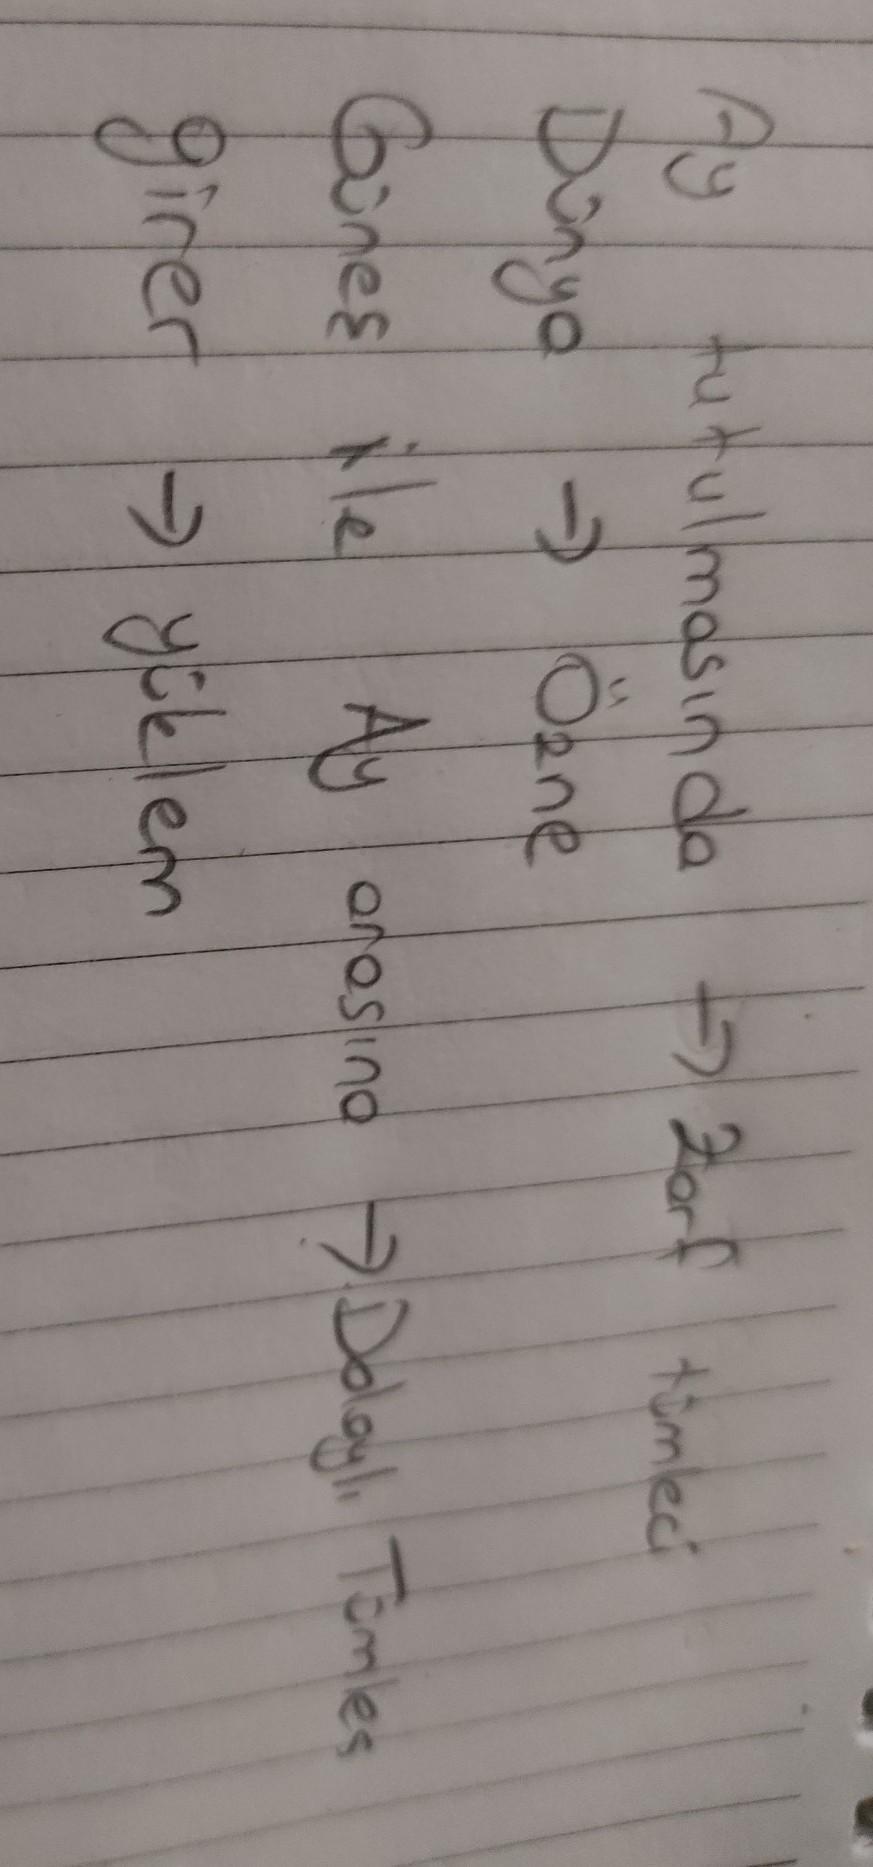 Ay tutulmasında → Zarf tümleci
Dünya → Özne
Güneş ile Ay arasına → Dolaylı Tümleş
girer → yüklem